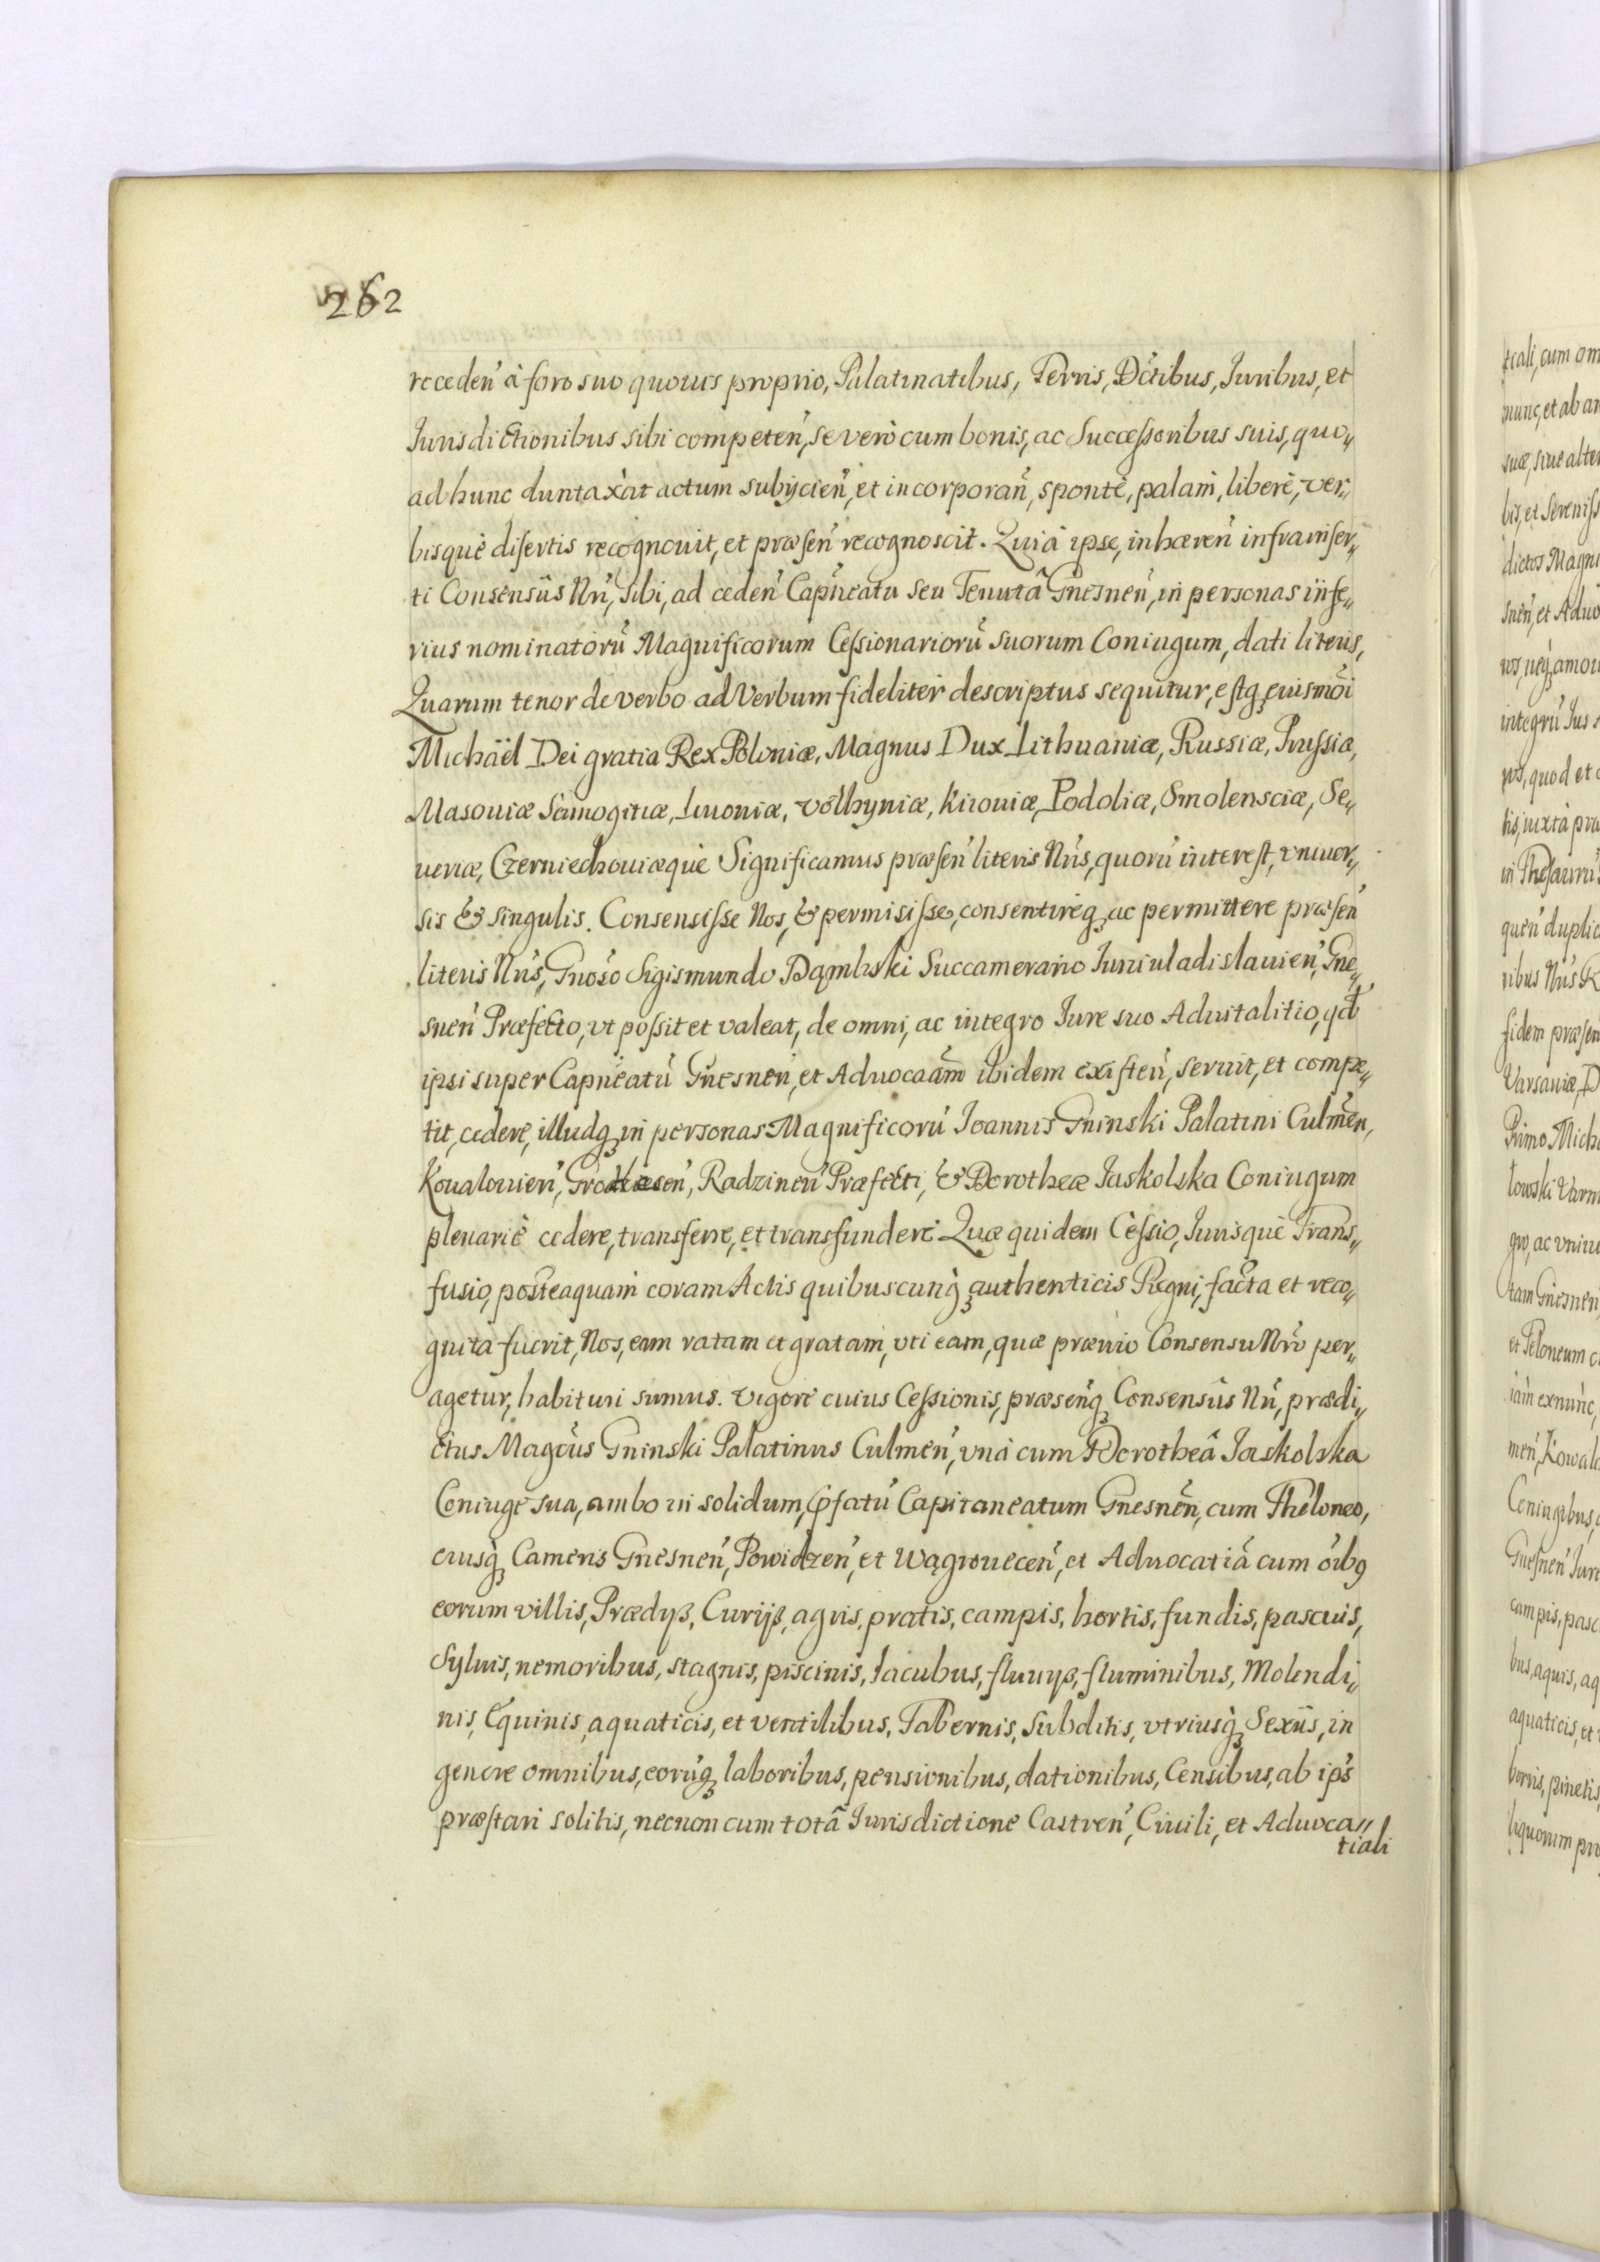 262
receden̄ à foro suo quouis proprio, Palatinatibus, Terris, Dctībus, Iuribus, et
Iurisdictionibus sibi competen̄, se verò cum bonis, ac Successoribus suis, quo„
ad hunc duntaxàt actum subijcien̄, et incorporan̄, spontè, palàm, liberè, ver„
bisquè disertis recognouit, et præsen̄ recognoscit. Quià ipse, inhæren̄ infrainser„
ti Consensûs Nrī, sibi, ad ceden̄ Capn̄eatu seu Tenutâ Gnesnen̄, in personas infe„
rius nominatorū Magnificorum Cessionariorū suorum Coniugum, dati literis,
Quarum tenor de verbo ad Verbum fideliter descriptus sequitur, estq₃ euismōi
Michaël Dei gratia Rex Poloniæ, Magnus Dux Lithuaniæ, Russiæ, Prussiæ,
Masouiæ Samogitiæ, Liuoniæ, Volhyniæ, Kiiouiæ, Podoliæ, Smolensciæ, Se„
ueriæ, Czerniechouiæquè Significamus præsen̄ literis Nrīs, quorū interest, vniuer„
sis & singulis. Consensisse Nos, & permisisse, consentireq₃ ac permittere præsen̄
literis Nrīs, Gnōso Sigismundo Dąmbski Succamerario Iuniuladislauien̄, Gne„
snen̄ Præfecto, vt possit et valeat, de omni, ac integro Iure suo Aduitalitio, qd̄
ipsi super Capn̄eatū Gnesnen̄, et Aduocaām̄ ibidem existen̄, seruit, et compe„
tit, cedere, illudq₃ in personas Magnificorū Ioannis Gninski Palatini Culmen̄,
Koualouien̄, Grodecen̄, Radzinen̄ Præfecti, & Dorotheæ Iaskolska Coniugum
plenariè cedere, transferre, et transfundere Quæ quidem Cessio, Iurisquè Trans„
fusio, posteaquam coram Actis quibuscunq₃ authenticis Regni, facta et reco„
gnita fuerit, Nos, eam ratam et gratam, vti eam, quæ præuio Consensu Nrō per„
agetur, habituri sumus. Vigore cuius Cessionis, præsenq₃ Consensûs Nrī, prædi„
ctus Magcūs Gninski Palatinus Culmen̄, vnà cum Dorotheâ Iaskolska
Coniuge sua, ambo in solidum, Pfatū Capitaneatum Gnesnen̄, cum Theloneo,
eiusq₃ Cameris Gnesnen̄, Powidzen̄, et Wągrouecen̄, et Aduocatiā cum oīb9
eorum villis, Prædijs, Curijs, agris, pratis, campis, hortis, fundis, pascuis,
Syluis, nemoribus, stagnis, piscinis, lacubus, fluuijs, fluminibus, Molendi„
nis, Equinis, aquaticis, et ventilibus, Tabernis, Subditis, vtriusq₃ Sexûs, in
genere omnibus, eorūq₃ laboribus, pensionibus, dationibus, Censibus, ab ips̄
præstari solitis, necnon cum totâ Iurisdictione Castren̄, Ciuili, et Aduoca„
tiali